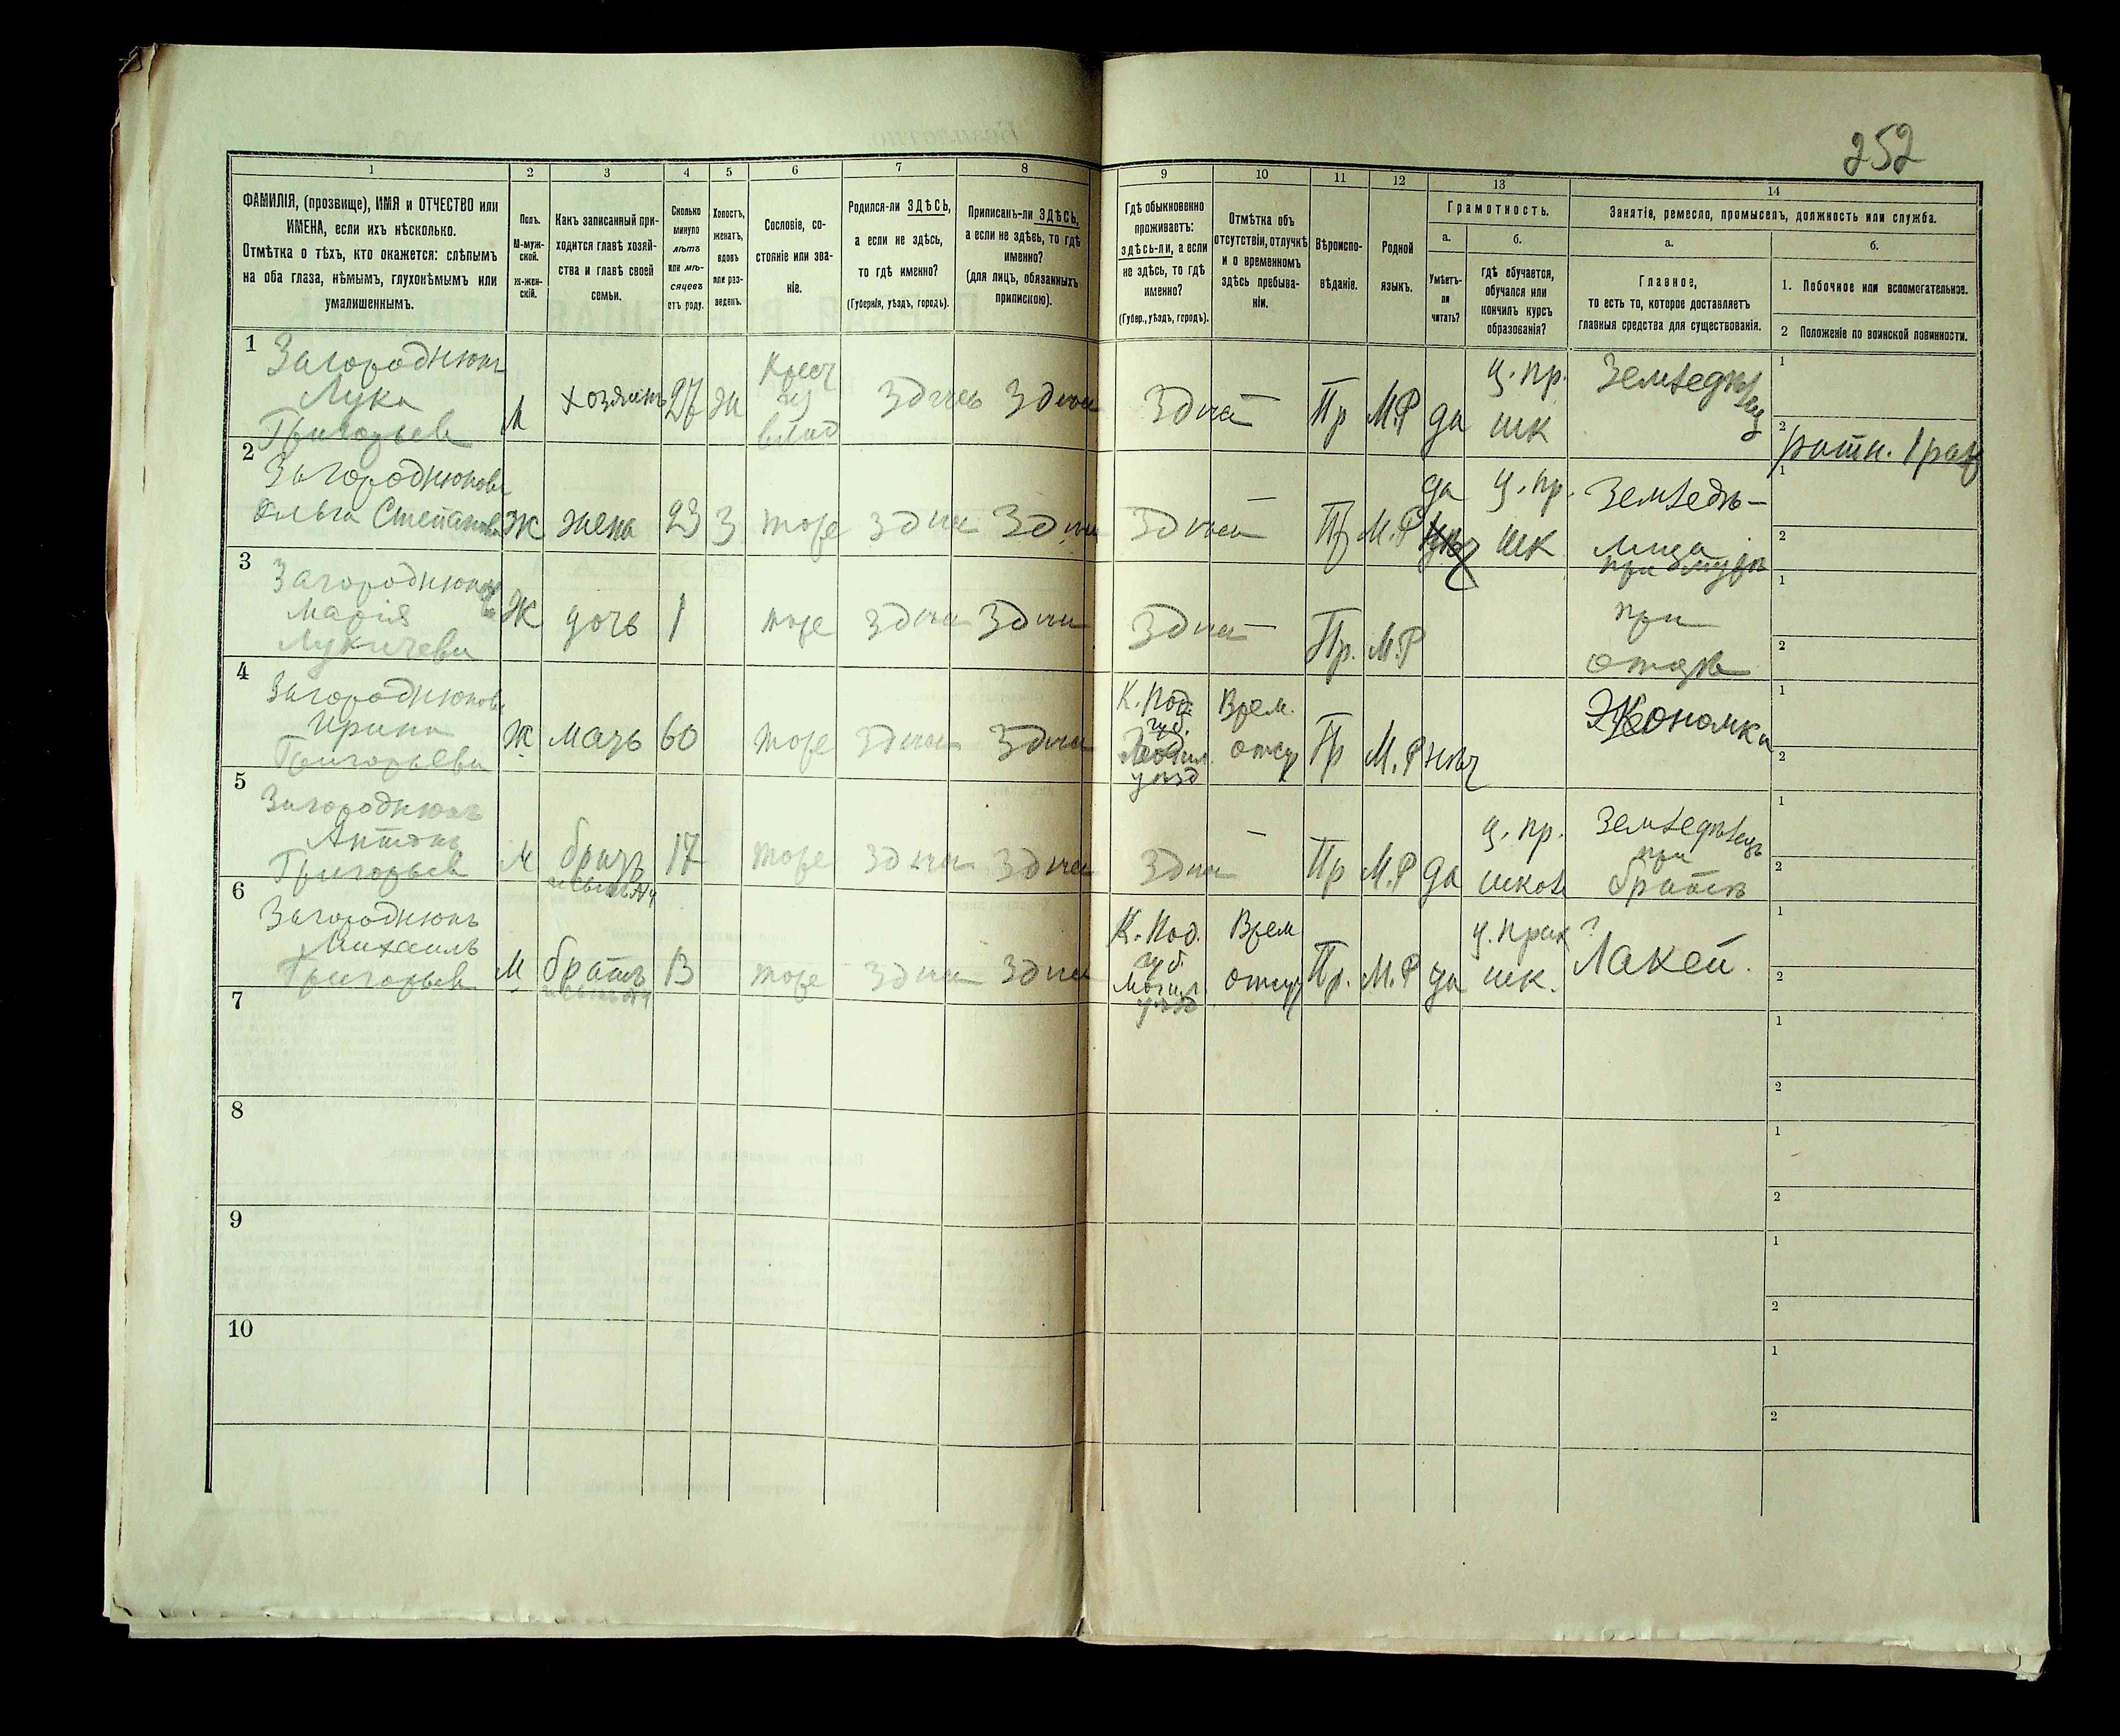 252
1 2 3 4 5 6 7 8 9 10 11 12 13 14
ФАМИЛІЯ, (прозвище), ИМЯ и ОТЧЕСТВО или
ИМЕНА, если ихъ нѣсколько.
Отмѣтка о тѣхъ, кто окажется: слѣпымъ
на оба глаза, нѣмымъ, глухонѣмымъ или
умалишеннымъ.
Полъ.
М-муж-
ской.
Ж-жен-
скій.
Какъ записанный при-
ходится главѣ хозяй-
ства и главѣ своей
семьи.
Сколько
минуло
лѣтъ
или мѣ-
сяцевъ
отъ роду.
Холостъ,
женатъ,
вдовъ
или раз-
веденъ.
Сословіе, со-
стояніе или зва-
ніе.
Родился-ли ЗДѢСЬ,
а если не здѣсь,
то гдѣ именно?
(Губернія, уѣздъ, городъ).
Приписанъ-ли ЗДѢСЬ,
а если не здѣсь, то гдѣ
именно?
(для лицъ, обязанныхъ
припискою).
Гдѣ обыкновенно
проживаетъ:
здѣсь-ли, а если
не здѣсь, то гдѣ
именно?
(Губер., уѣздъ, городъ).
Отмѣтка объ
отсутствіи, отлучкѣ
и о временномъ
здѣсь пребыва-
ніи.
Вѣроиспо-
вѣданіе.
Родной
языкъ.
Грамотность.
а.
Умѣетъ-
ли
читать?
б.
гдѣ обучается,
обучался или
кончилъ курсъ
образованія?
Занятія, ремесло, промыселъ, должность или служба.
а.
Главное,
то есть то, которое доставляетъ
главныя средства для существованія.
б.
1. Побочное или вспомогательное.
2 Положеніе по воинской повинности.
1
Загороднюкъ
Лука
Григорьев
М
хозяинъ
27
Ж
Крест
из
влад
Здѣсь
Здѣсь
Здѣсь
—
Пр
М.Р
да
ц. пр.
шк
Земледѣлец
1
2
ратн. 1 раз
2
Загороднюкова
Ольга Степанова
Ж
жена
23
З
тоже
Здѣсь
Здѣсь
Здѣсь
—
Пр
М.Р
да
ц. пр.
шк
Земледѣ-
лица
при мужѣ
1
2
3
Загороднюкова
Марія
Лукичева
Ж
дочь
1
тоже
Здѣсь
Здѣсь
Здѣсь
—
Пр.
М.Р
при
отцѣ
1
2
4
Загороднюкова
Ирина
Григорьева
Ж
мать
60
тоже
Здѣсь
Здѣсь
К. Под
губ.
Могил.
уѣзд
Врем.
отсут
Пр
М.Р
нѣт
Экономка
1
2
5
Загороднюкъ
Антонъ
Григорьев
М
братъ
17
тоже
Здѣсь
Здѣсь
Здѣсь
—
Пр
М.Р
да
ц. пр.
школ
Земледѣлецъ
при
братѣ
1
2
6
Загороднюкъ
Михаилъ
Григорьев
М
братъ
13
тоже
Здѣсь
Здѣсь
К. Под.
губ.
Могил.
уѣзд
Врем
отсут
Пр.
М.Р
да
ц. прих
шк.
?
Лакей.
1
2
7
1
2
8
1
2
9
1
2
10
1
2